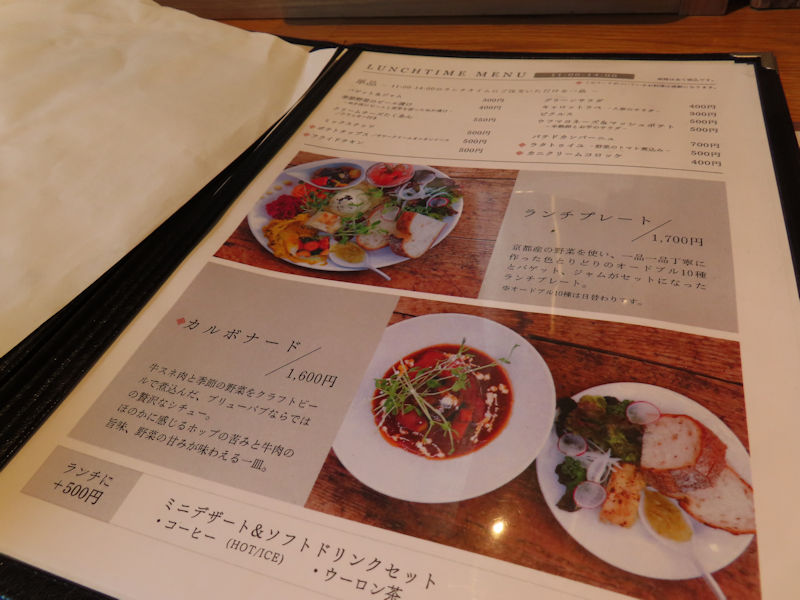 LUNCHTIME MENU 11:00-14:00
単品
バゲット&ジャム 300円
400円
クリームチーズたくあん 550円
ミックスナッツ 500円
ポテトチップス 500円
フライドチキン 500円
グリーンサラダ 400円
キャロットラペ 300円
ピクルス 500円
ツナマヨネーズ&マッシュポテト 500円
パテドカンパーニュ 700円
ラタトゥイユ -野菜のトマト煮込み- 500円
カニクリームコロッケ 400円
ランチプレート
1,700円
京都産の野菜を使い、一品一品丁寧に
作った色とりどりのオードブル10種
とバゲット、ジャムがセットになった
ランチプレート。
※オードブル10種は日替わりです。
カルボナード
1,600円
牛スネ肉と季節の野菜をクラフトビー
ルで煮込んだ、ブリューパブならでは
の贅沢なシチュー。
ほのかに感じるホップの苦みと牛肉の
旨味、野菜の甘みが味わえる一皿。
ランチに
+500円
ミニデザート&ソフトドリンクセット
・コーヒー (HOT/ICE)
・ウーロン茶